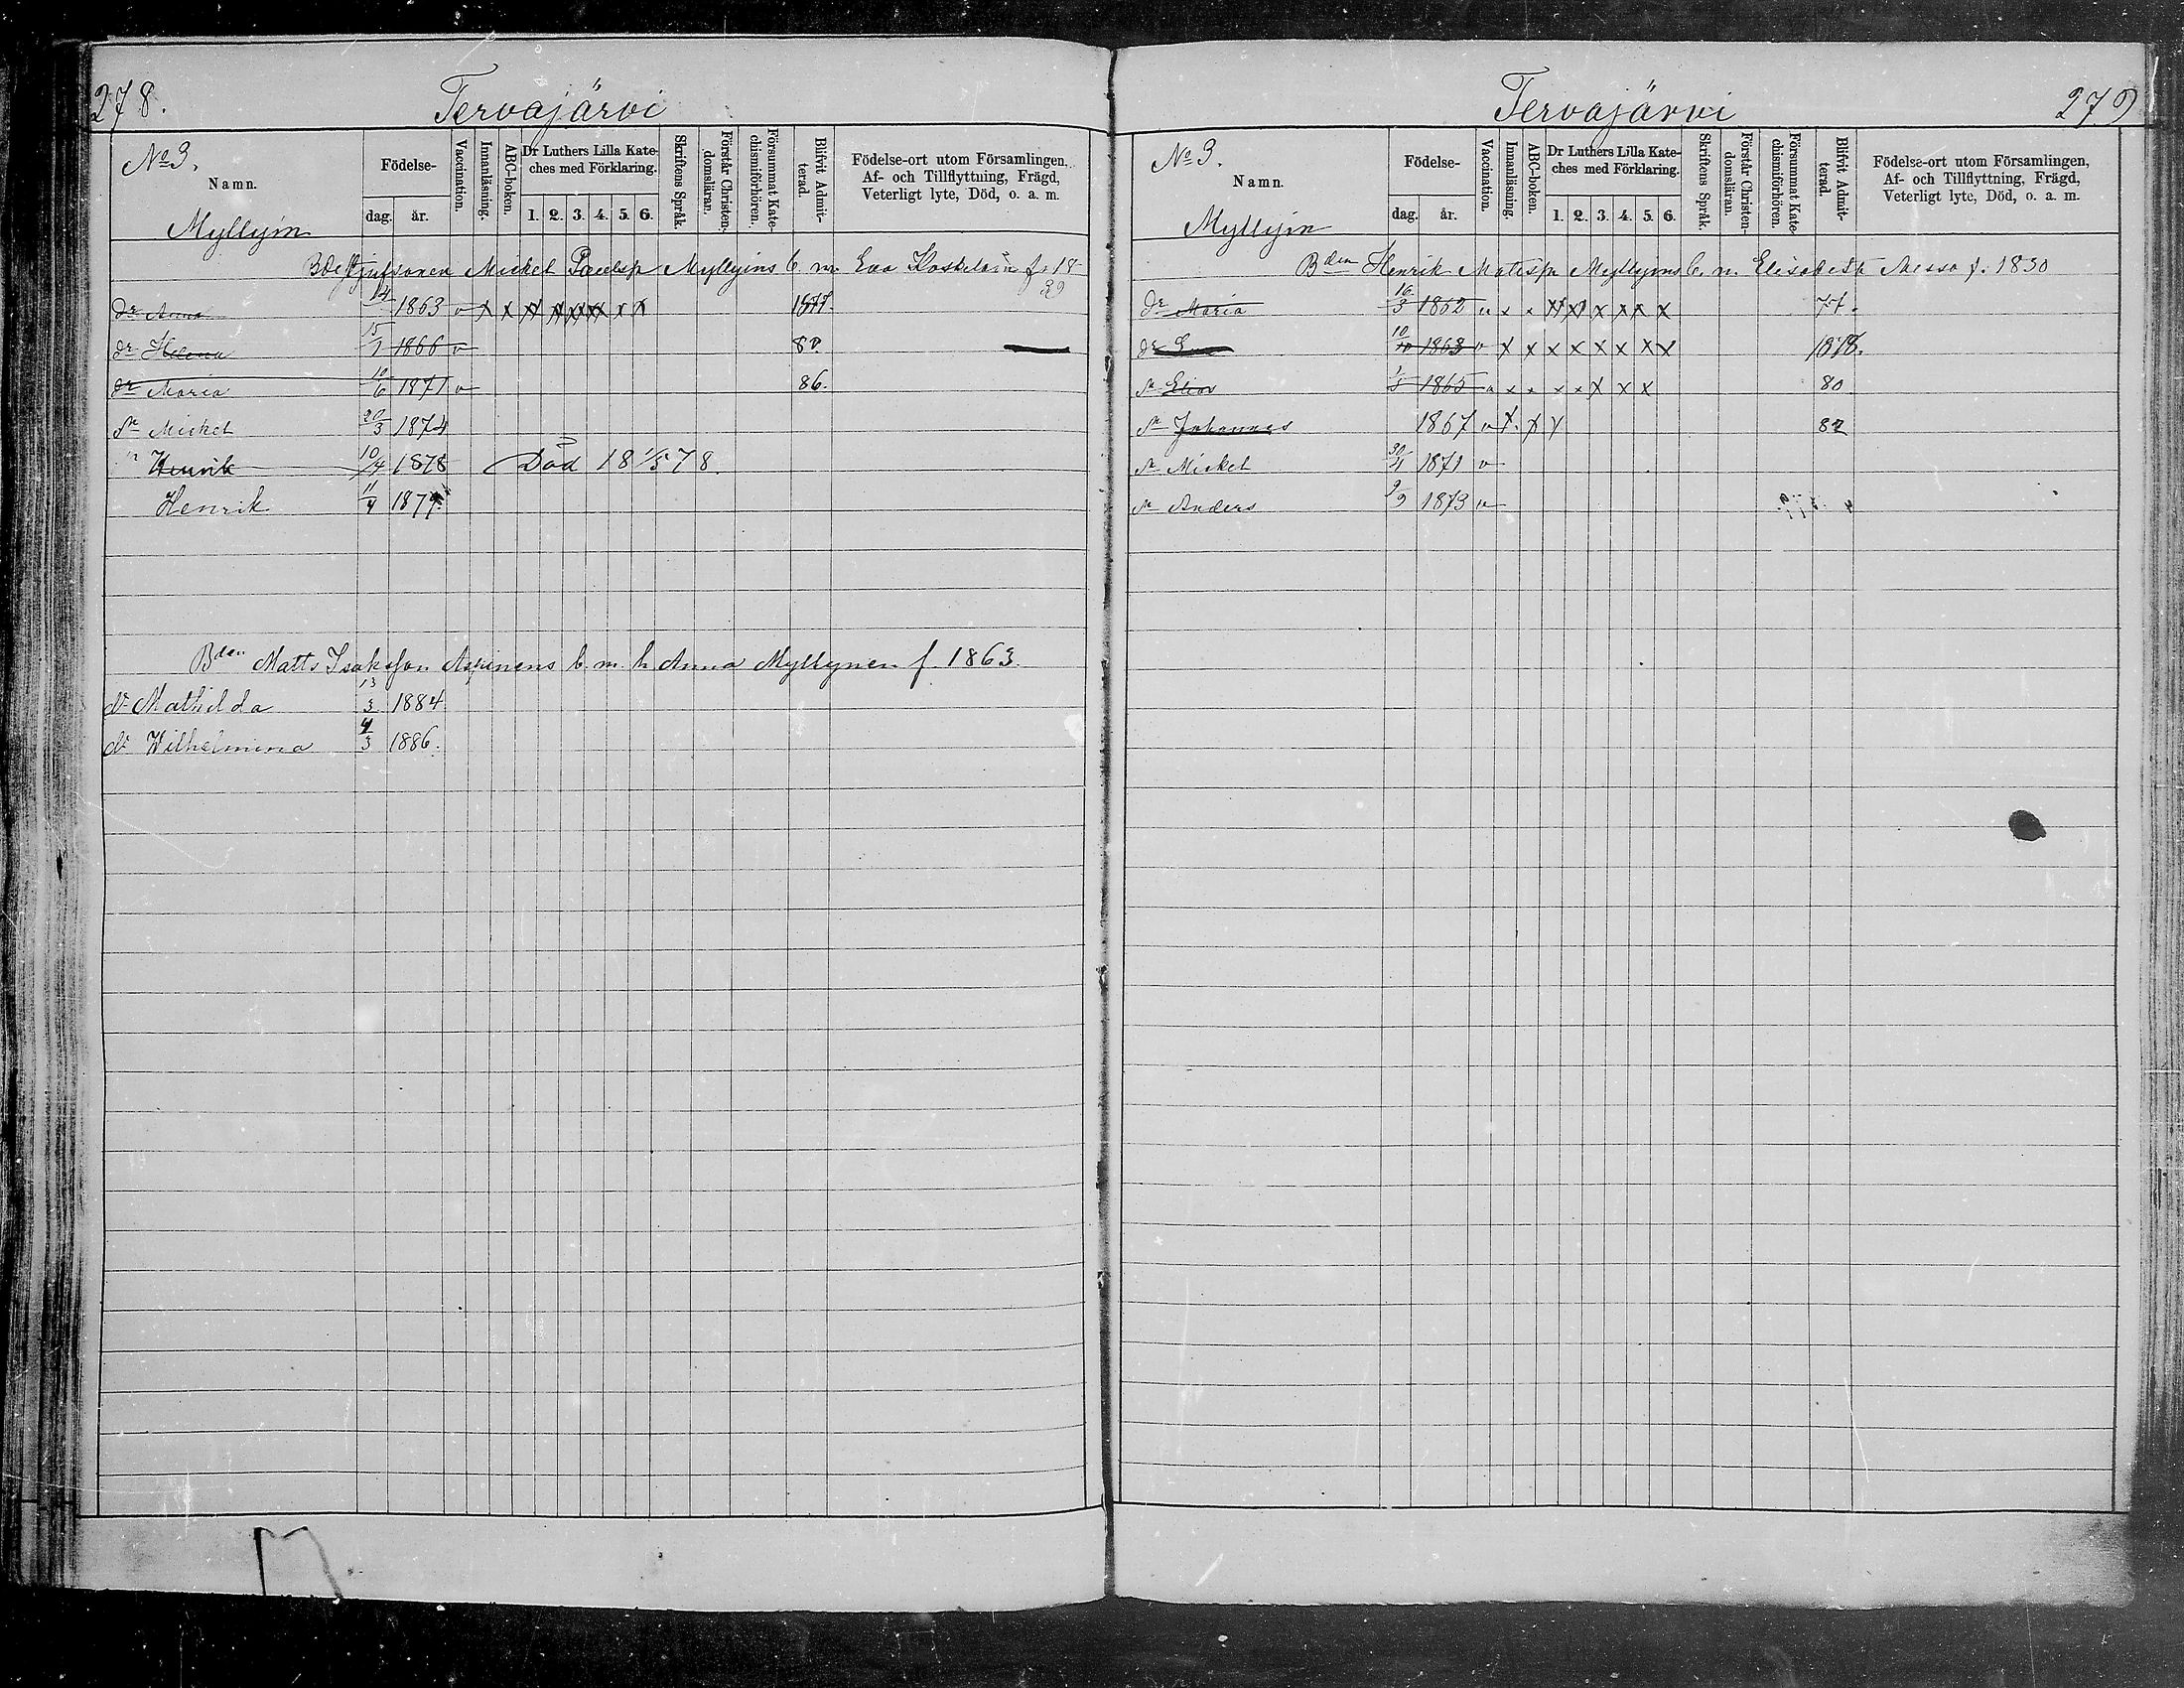 278.
Tervajärvi
No 3.
Namn.
Födelse-
dag.
år.
Vaccination.
Innanläsning.
ABC-boken.
Dr Luthers Lilla Kate-
ches med Förklaring.
1. 2. 3. 4. 5. 6.
Skriftens Språk.
Förstår Christen-
domsläran.
Försummat Kate-
chismiförhören.
Blifvit Admit-
terad.
Födelse-ort utom Församlingen,
Af- och Tillflyttning, Frägd,
Veterligt lyte, Död, o. a. m.
Myllyin
Mickel Paulsp Myllyins b. m. Eva f. 18
39
dr Anna 1863 v x x x x x x x x 1877.
dr Helena 15/7 1866 v 82.
dr Maria 10/6 1871 v 86.
sn Mickel 20/3 1874
" Henrik 10/4 1878 Död 18 1/5 78.
Henrik 11/4 1879
Bden Matts Isaksson b. m. h Anna Myllynen f. 1863.
dr Mathilda 13/3 1884
dr Wilhelmina 4/3 1886.
Tervajärvi
279
No 3.
Namn.
Födelse-
dag.
år.
Vaccination.
Innanläsning.
ABC-boken.
Dr Luthers Lilla Kate-
ches med Förklaring.
1. 2. 3. 4. 5. 6.
Skriftens Språk.
Förstår Christen-
domsläran.
Försummat Kate-
chismiförhören.
Blifvit Admit-
terad.
Födelse-ort utom Församlingen,
Af- och Tillflyttning, Frägd,
Veterligt lyte, Död, o. a. m.
Myllyin
Bden Henrik Matssp Myllyins b. m. Elisabeth f. 1830
dr Maria 16/3 1862 v x x x x x x x x 77.
dr 10/10 1863 v x x x x x x x x 1878.
sn Elias 1865 v x x x x x x x 80
sn Johannes 1867 v x x x 82
sn Mickel 30/4 1871 v
sn Anders 9/9 1873 v